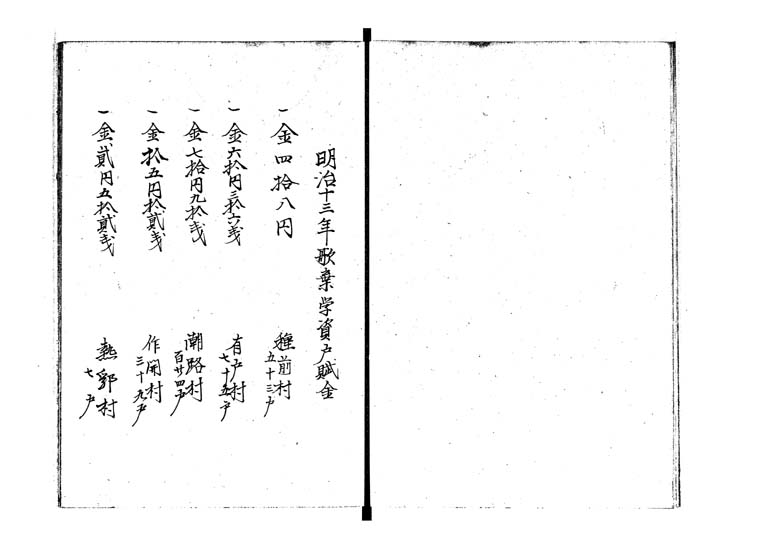 明治十三年歌棄学資戸賦金
一金四拾八円
種前村
五十三戸
一金六拾円三拾六戋
有戸村
七十五戸
一金七拾円九拾戋
潮路村
百廿四戸
一金拾五円拾貳戋
作開村
三十九戸
一金貳円五拾貳戋
熱郛村
七戸